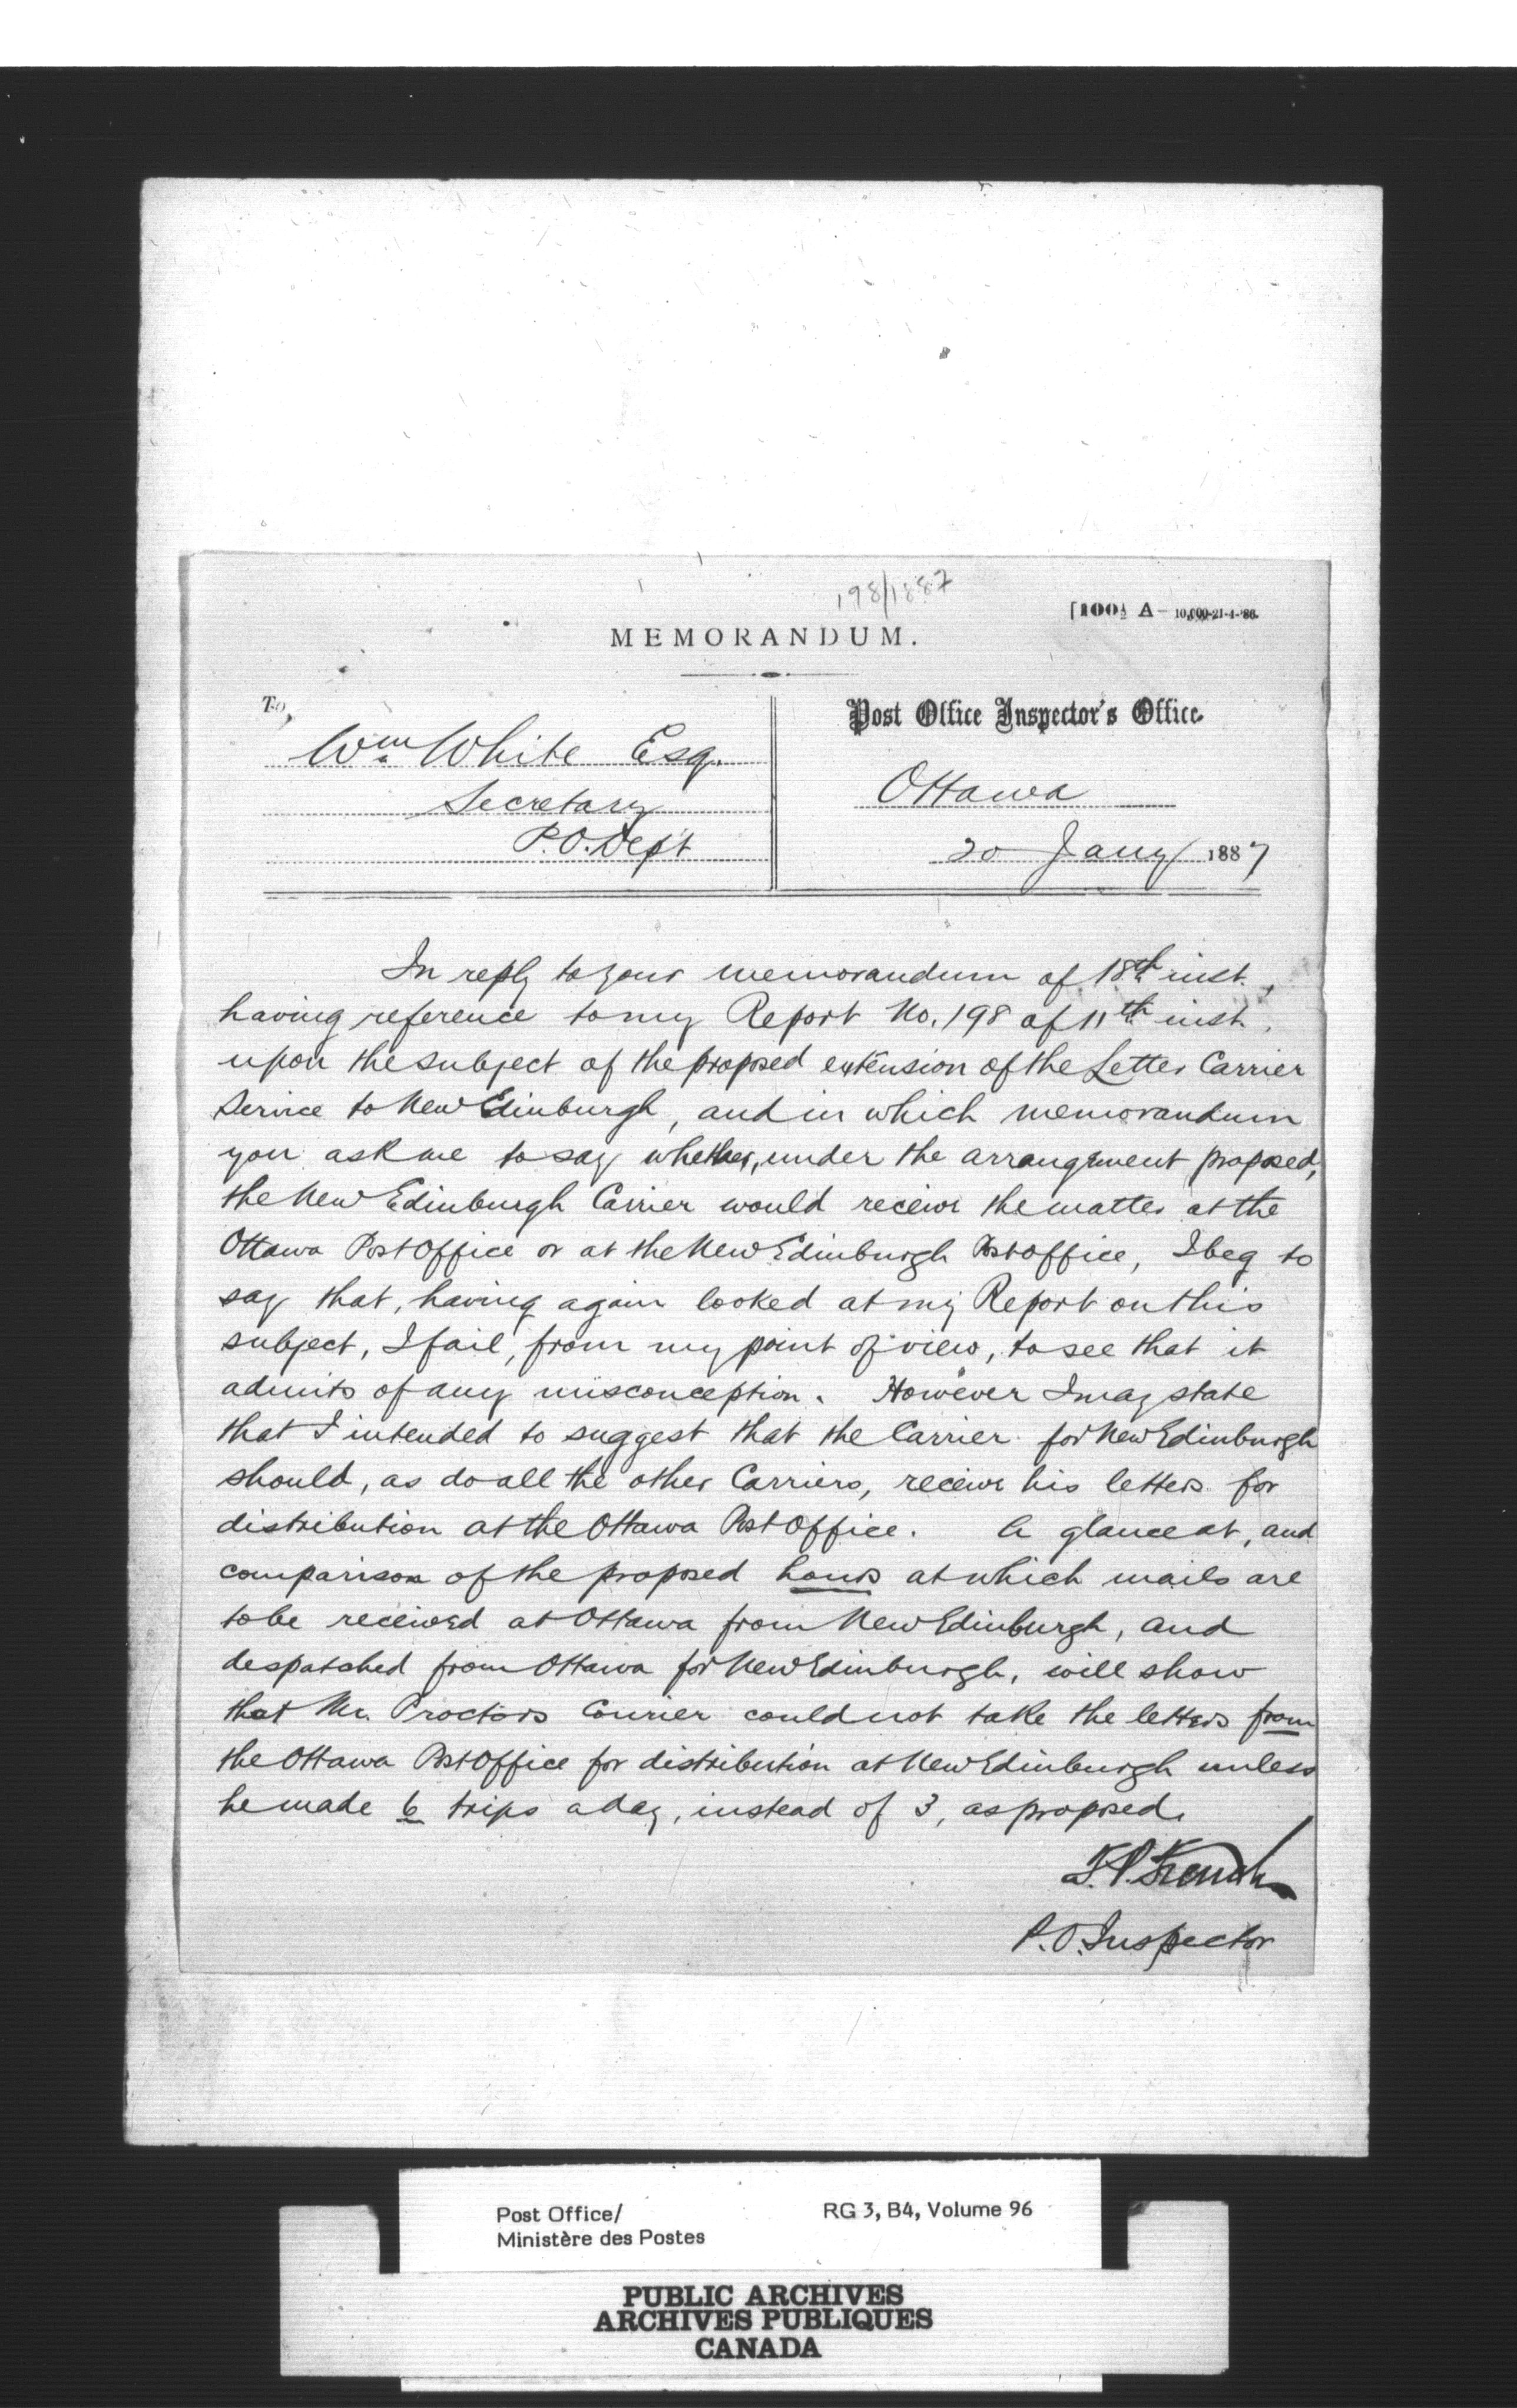 198/1887
[100½ A— 10,000-21-4-'86.
MEMORANDUM.
To,
Wm White Esq.
Secretary
P.O. Dept
Post Office Inspector's Office.
Ottawa
20 Jany 1887
In reply to your memorandum of 18th inst.,
having reference to my Report No. 198 of 11th inst.
upon the subject of the proposed extension of the Letter Carrier
Service to New Edinburgh, and in which memorandum
you ask me to say whether, under the arrangement proposed,
the New Edinburgh Carrier would receive the matter at the
Ottawa Post Office or at the New Edinburgh Post office, I beg to
say that, having again looked at my Report on this
subject, I fail, from my point of view, to see that it
admits of any misconception. However I may state
that I intended to suggest that the Carrier for New Edinburgh
should, as do all the other Carriers, receive his letters for
distribution at the Ottawa Post Office. A glance at, and
comparison of the proposed hours at which mails are
to be received at Ottawa from New Edinburgh, and
despatched from Ottawa for New Edinburgh, will show
that Mr. Proctors Courier could not take the letters from
the Ottawa Post Office for distribution at New Edinburgh unless
he made 6 trips a day, instead of 3, as proposed.
T.P. French
P.O. Inspector
Post Office/
Ministère des Postes
RG 3, B4, Volume 96
PUBLIC ARCHIVES
ARCHIVES PUBLIQUES
CANADA